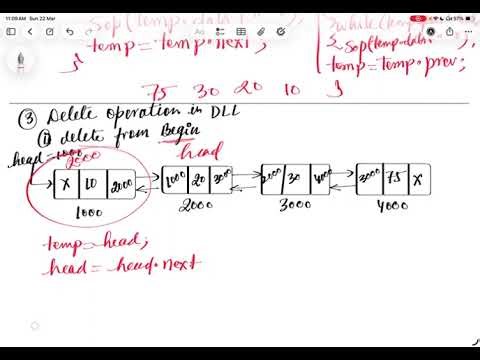 11:09 AM Sun 22 Mar
97%
Sop(temp.data
temp = temp.next;
}
while(temp
{ Sop(temp.data
);
temp = temp.prev;
}
75 30 20 10
③ Delete operation in DLL
(i) delete from Begin
head=1000
2000
head
X 10 2000
1000 20 3000
2000 30 4000
3000 75 X
1000
2000
3000
4000
temp = head;
head = head.next